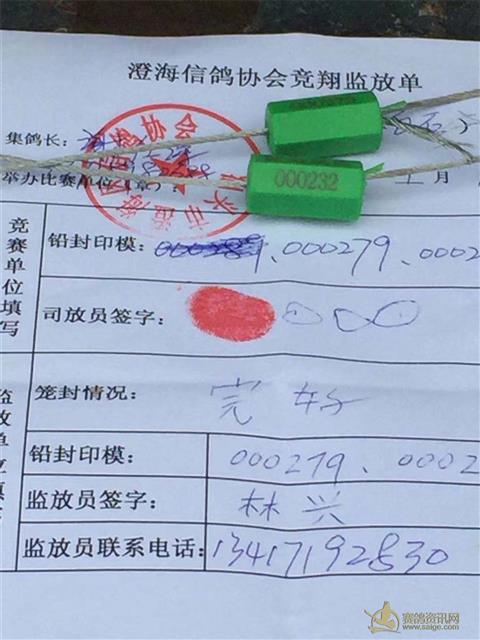 澄海信鸽协会竞翔监放单
集鸽长：
000232
举办比赛单位（章）： 月
竞赛单位填写
铅封印模： 000289、000279、0002
司放员签字： 000
笼封情况： 完好
铅封印模： 000279、0002
监放员签字： 林兴
监放员联系电话： 13417192830
监放单位填
赛鸽资讯网
www.saige.com